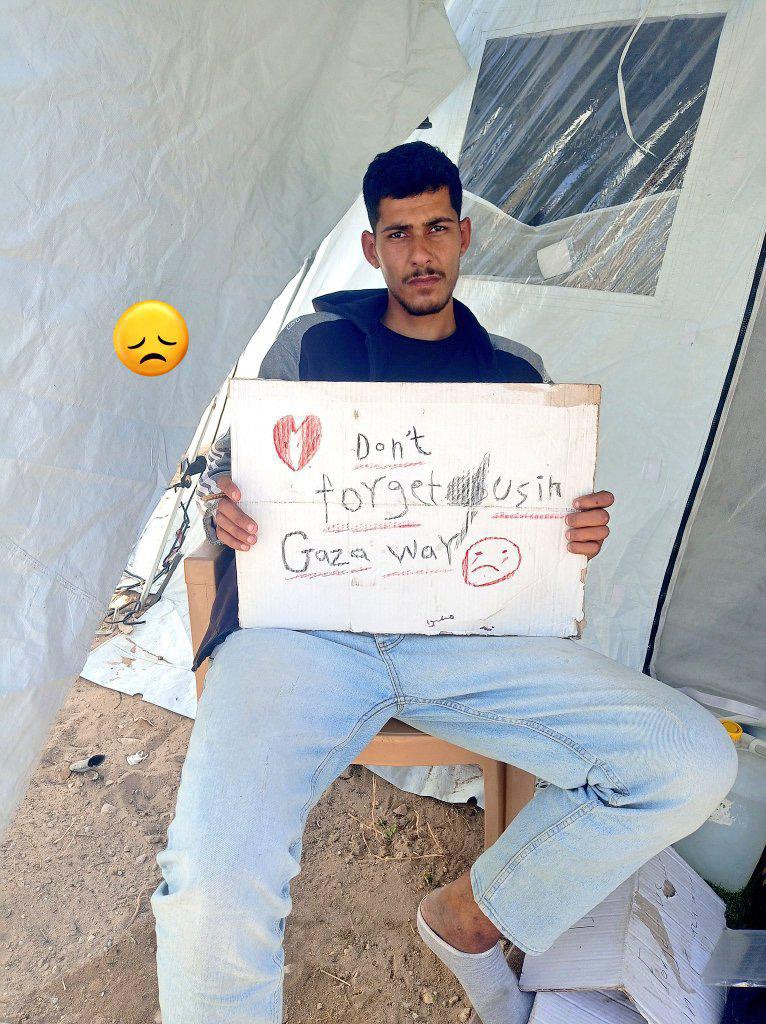 Don't
forget usin
Gaza war